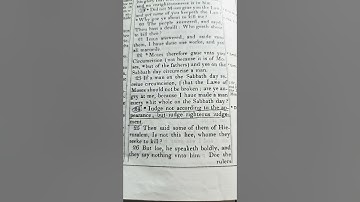 vnrighteousnesse is in him.
* Did not Moses giue you
and yet none of you keepeth the Law?
Why goe ye about to kill me?
20 The people answered, and said,
Thou hast a deuill: Who goeth about
to kill thee?
21 Iesus answered, and said vnto
them, I haue done one worke, and yee
all maruaile.
22 * Moses therefore gaue vnto you
Circumcision (not because it is of Mo-
ses, * but of the fathers) and yee on the
Sabbath day circumcise a man.
23 If a man on the Sabbath day re-
ceiue circumcision, || that the Law of
Moses should not be broken; are ye an-
gry at me, because I haue made a man
euery whit whole on the Sabbath day?
24 * Iudge not according to the ap-
pearance, but iudge righteous iudge-
ment.
25 Then said some of them of Hie-
rusalem, Is not this hee, whome they
seeke to kill?
26 But loe, he speaketh boldly, and
they say nothing vnto him: Doe the
rulers